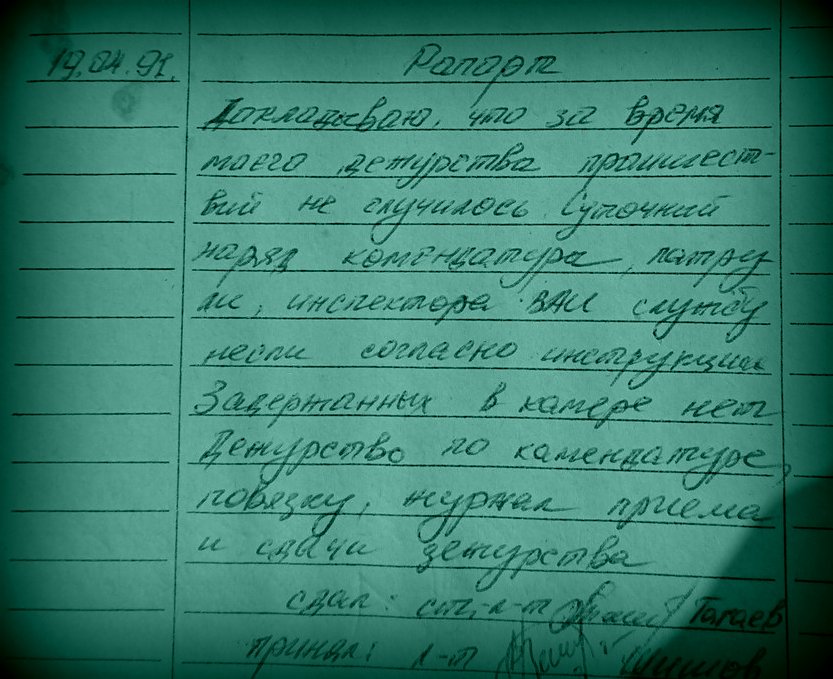 19.04.91. Рапорт
Докладываю, что за время
моего дежурства происшест-
вий не случилось Суточный
наряд комендатура, патру
ли, инспектора ВАИ службу
несли согласно инструкции
Задержанных в камере нет
Дежурство по комендатуре,
повязку, журнал приема
и сдачи дежурства
сдал: ст. л-т Гагаев
принял: л-т